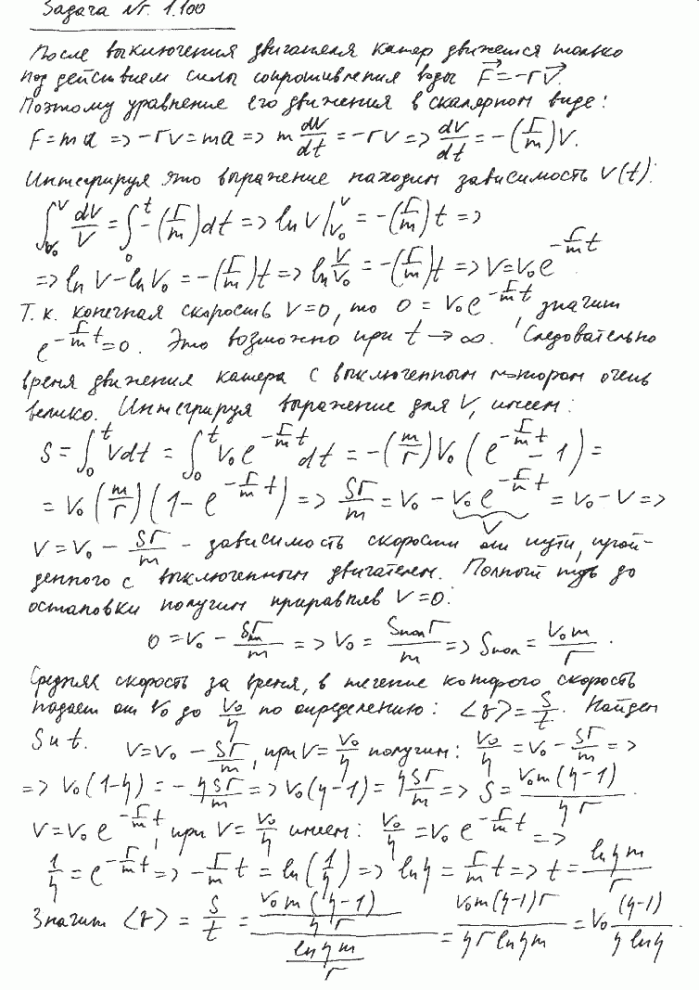 Задача № 1.100
После выключения двигателя катер движется только
под действием силы сопротивления воды F⃗=-rV⃗.
Поэтому уравнение его движения в скалярном виде:
F=ma => -rv=ma => m dV/dt = -rv => dV/dt = -(r/m)V.
Интегрируя это выражение находим зависимость V(t):
∫_{V₀}^{V} dV/V = ∫_0^t -(r/m)dt => ln V|_{V₀}^{V} = -(r/m)t =>
=> ln V - ln V₀ = -(r/m)t => ln V/V₀ = -(r/m)t => V=V₀e^{-r/m t}
Т.к. конечная скорость V=0, то 0 = V₀e^{-r/m t}, значит
e^{-r/m t}=0. Это возможно при t→∞. Следовательно
время движения катера с выключенным мотором очень
велико. Интегрируя выражение для V, имеем:
S = ∫_0^t Vdt = ∫_0^t V₀e^{-r/m t}dt = -(m/r)V₀(e^{-r/m t} - 1) =
= V₀(m/r)(1 - e^{-r/m t}) => Sr/m = V₀ - V₀e^{-r/m t} = V₀ - V =>
V
V = V₀ - Sr/m - зависимость скорости от пути, прой-
денного с выключенным двигателем. Полный путь до
остановки получим приравняв V=0:
0 = V₀ - Sr/m => V₀ = Sпол r/m => Sпол = V₀m/r.
Средняя скорость за время, в течение которого скорость
падает от V₀ до V₀/η по определению: <v> = S/t. Найдем
S и t. V=V₀ - Sr/m, при V=V₀/η получим: V₀/η = V₀ - Sr/m =>
=> V₀(1-η) = -ηSr/m => V₀(η-1) = ηSr/m => S = V₀m(η-1)/ηr.
V = V₀e^{-r/m t}, при V = V₀/η имеем: V₀/η = V₀e^{-r/m t} =>
1/η = e^{-r/m t} => -r/m t = ln(1/η) => ln η = r/m t => t = ln η m/r
Значит <v> = S/t = (V₀m(η-1)/ηr)/(ln η m/r) = V₀m(η-1)r/ηr ln η m = V₀ (η-1)/η ln η.